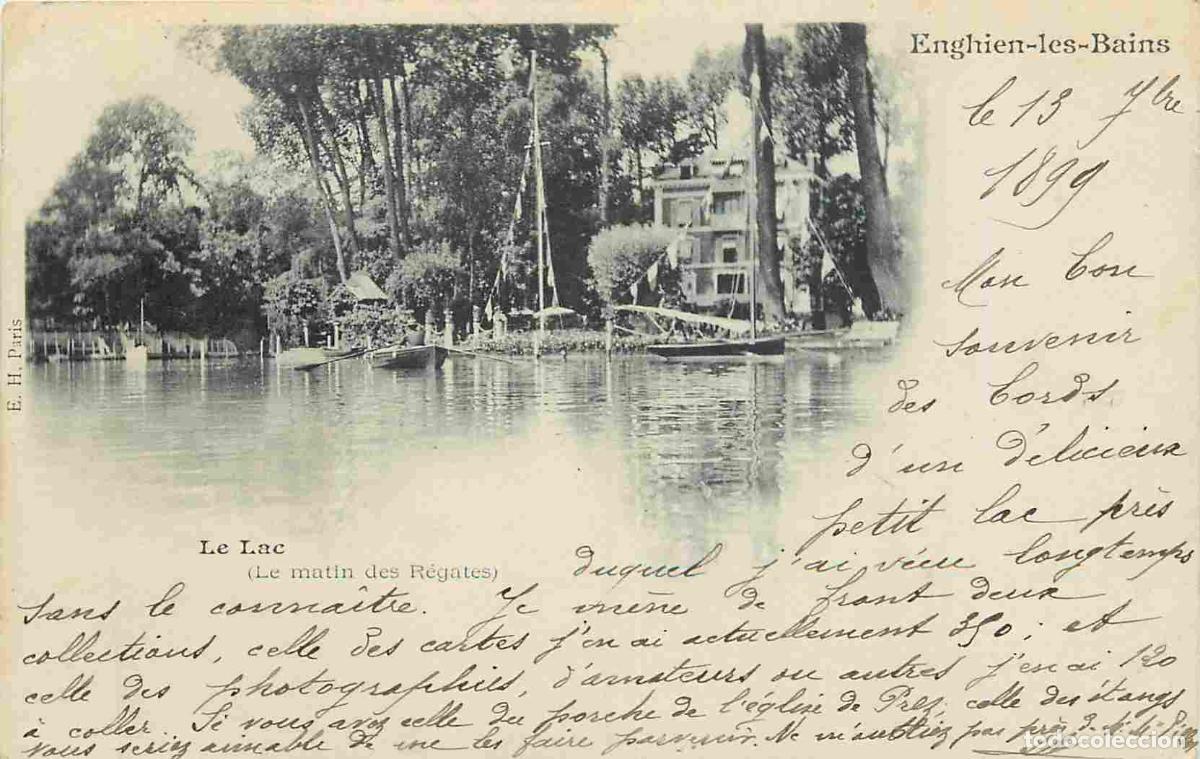 Enghien-les-Bains
le 13 7bre
1899
Mon bon
souvenir
des bords
d'un délicieux
petit lac près
duquel j'ai vécu longtemps
sans le connaître. Je mène de front deux
collections, celle des cartes j'en ai actuellement 350; et
celle des photographies, d'amateurs ou autres j'en ai 120
à coller. Si vous avez celle du porche de l'église de Prez, celle des étangs
vous seriez aimable de me les faire parvenir. Ne m'oubliez pas près
E. H. Paris
Le Lac
(Le matin des Régates)
todocoleccion